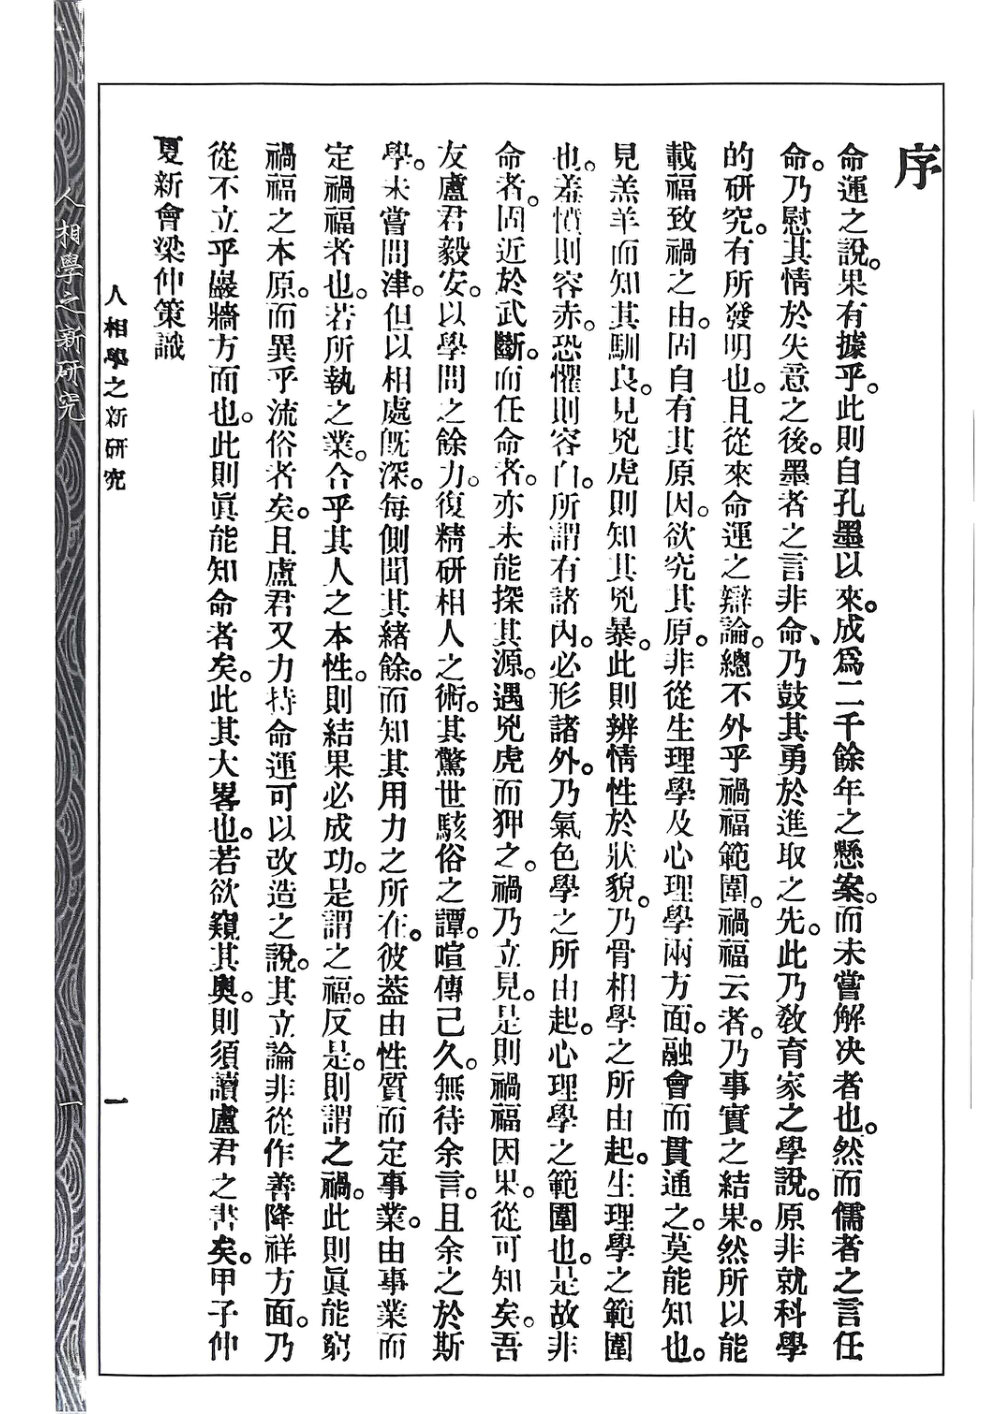 序
命運之說。果有據乎。此則自孔墨以來。成爲二千餘年之懸案。而未嘗解决者也。然而儒者之言任
命。乃慰其情於失意之後。墨者之言非命、乃鼓其勇於進取之先。此乃敎育家之學說。原非就科學
的研究。有所發明也。且從來命運之辯論。總不外乎禍福範圍。禍福云者。乃事實之結果。然所以能
載福致禍之由。固自有其原因。欲究其原。非從生理學及心理學兩方面。融會而貫通之。莫能知也。
見羔羊而知其馴良。見兕虎則知其兇暴。此則辨情性於狀貌。乃骨相學之所由起。生理學之範圍
也。羞憤則容赤。恐懼則容白。所謂有諸內。必形諸外。乃氣色學之所由起。心理學之範圍也。是故非
命者。固近於武斷。而任命者。亦未能探其源。遇兕虎而狎之。禍乃立見。是則禍福因果。從可知矣。吾
友盧君毅安。以學問之餘力。復精研相人之術。其驚世駭俗之譚。喧傳己久。無待余言。且余之於斯
學。未嘗問津。但以相處旣深。每側聞其緒餘。而知其用力之所在。彼蓋由性質而定事業。由事業而
定禍福者也。若所執之業。合乎其人之本性。則結果必成功。是謂之福。反是。則謂之禍。此則眞能窮
禍福之本原。而異乎流俗者矣。且盧君又力持命運可以改造之說。其立論非從作善降祥方面。乃
從不立乎巖牆方而也。此則眞能知命者矣。此其大畧也。若欲窺其奧。則須讀盧君之書矣。甲子仲
夏新會梁仲策識
人相學之新研究
一
人相學之新研究
一